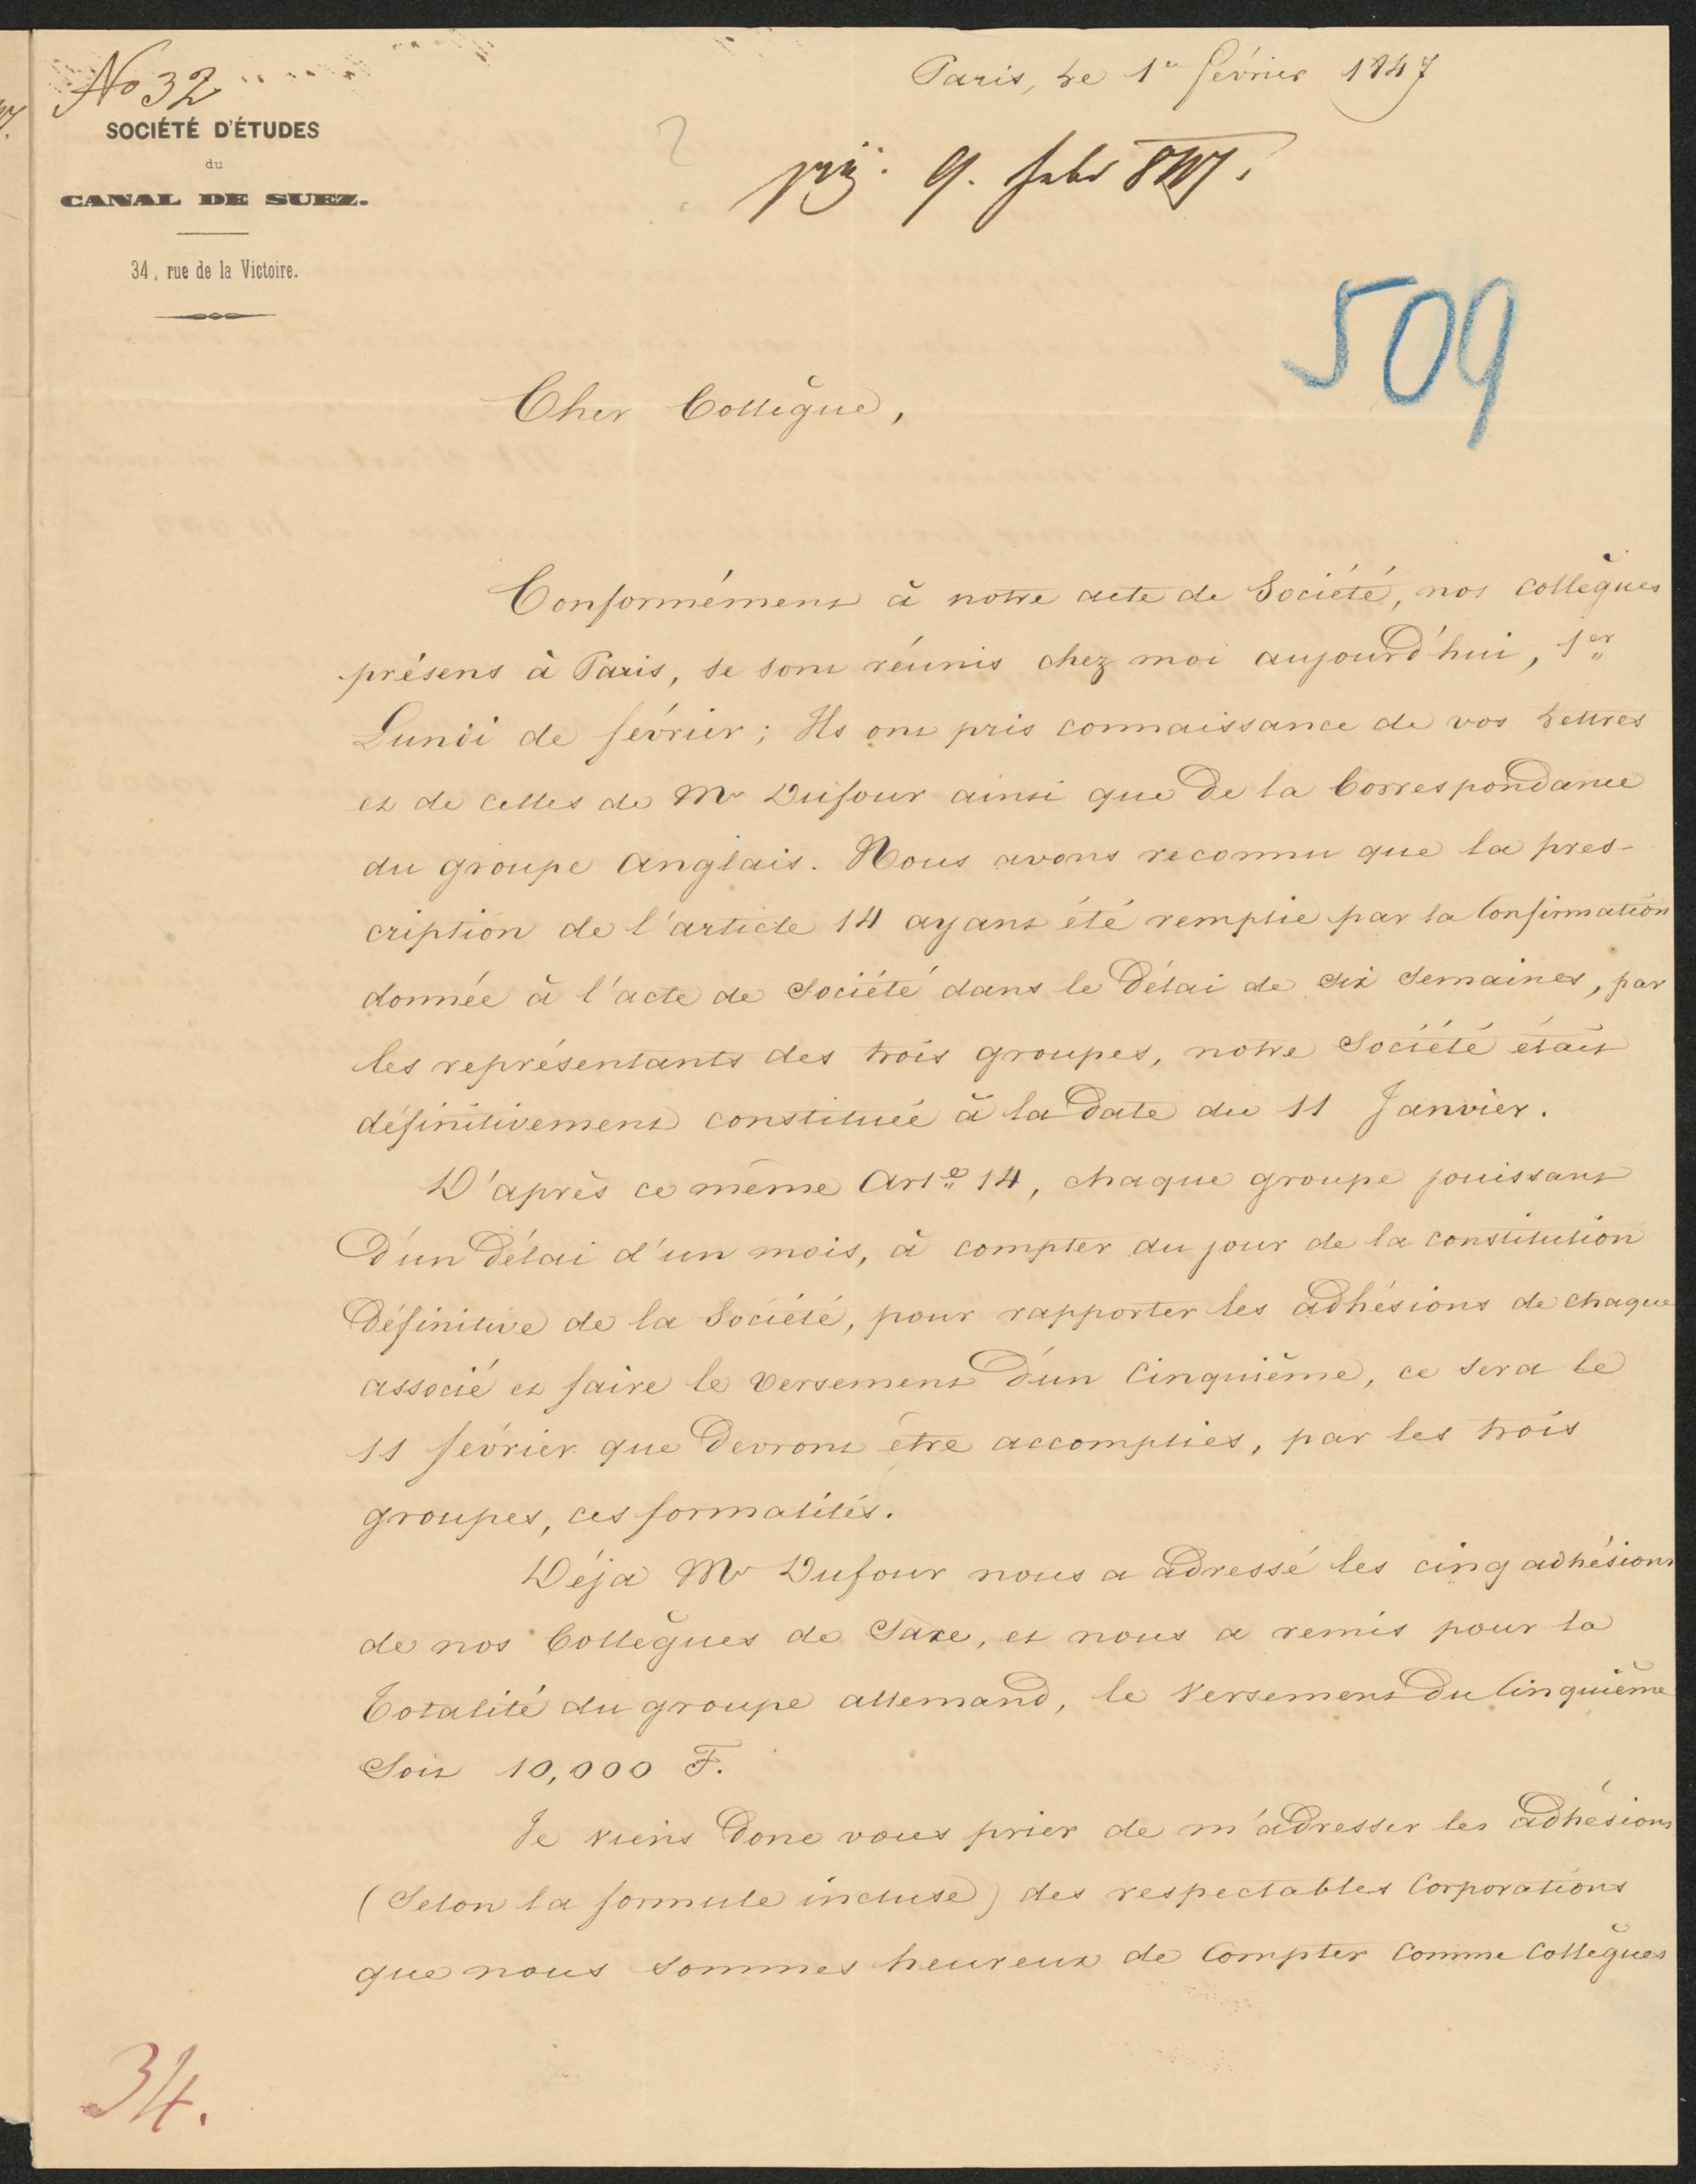 No 32
SOCIÉTÉ D'ÉTUDES
du
CANAL DE SUEZ.
34, rue de la Victoire.
Paris, le 1er février 1847
9. Febr 847.
509
Cher Collègue,
Conformément à notre acte de Société, nos collègues
présens à Paris, se sont réunis chez moi aujourd'hui, 1er
Lundi de février ; Ils ont pris connaissance de vos lettres
et de celles de Mr Dufour ainsi que de la Correspondance
du groupe anglais. Nous avons reconnu que la pres-
cription de l'article 14 ayant été remplie par la Confirmation
donnée à l'acte de Société dans le délai de six semaines, par
les représentants des trois groupes, notre Société était
définitivement constituée à la date du 11 Janvier.
D'après ce même Arte 14, chaque groupe jouissant
d'un délai d'un mois, à compter du jour de la constitution
définitive de la Société, pour rapporter les adhésions de chaque
associé et faire le versement d'un Cinquième, ce sera le
11 février que devront être accomplies, par les trois
groupes, ces formalités.
Déja Mr Dufour nous a adressé les cinq adhésions
de nos Collègues de Saxe, et nous a remis pour la
Totalité du groupe allemand, le versement du Cinquième
Soit 10,000 F.
Je viens donc vous prier de m'adresser les adhésions
(Selon la formule incluse) des respectables Corporations
que nous sommes heureux de Compter Comme Collègues
34.